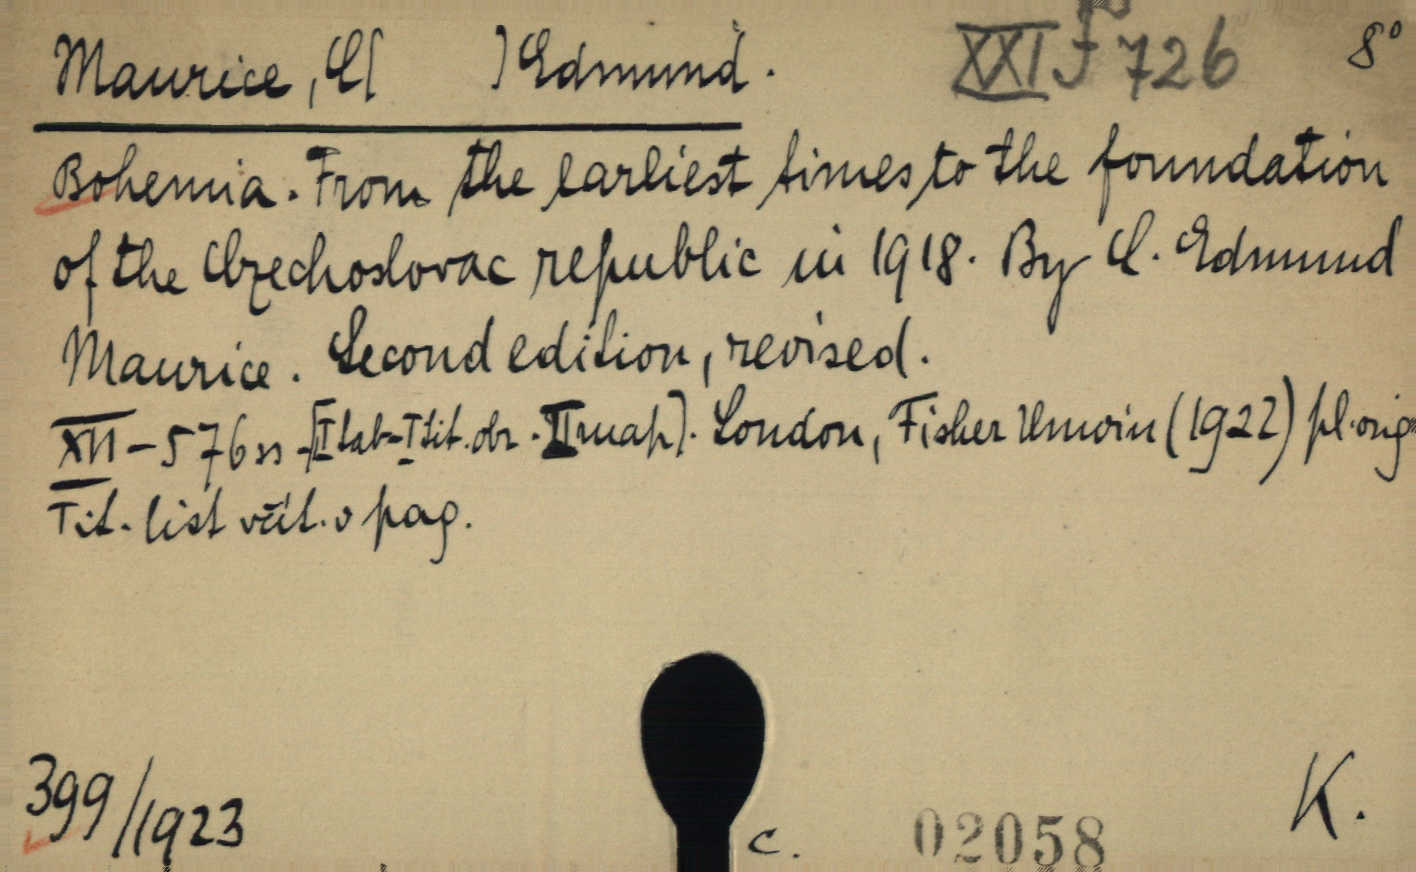 Maurice, C[ ] Edmund. XXI F 726 8°
Bohemia. From the earliest times to the foundation
of the Czechoslovac republic in 1918. By C. Edmund
Maurice. Second edition, revised.
XII-576 ss -[I tab-I tit. obr. II map]. London, Fisher Unwin (1922) pl. orig
Tit. list včít. v pag.
399/1923
c. 02058
K.